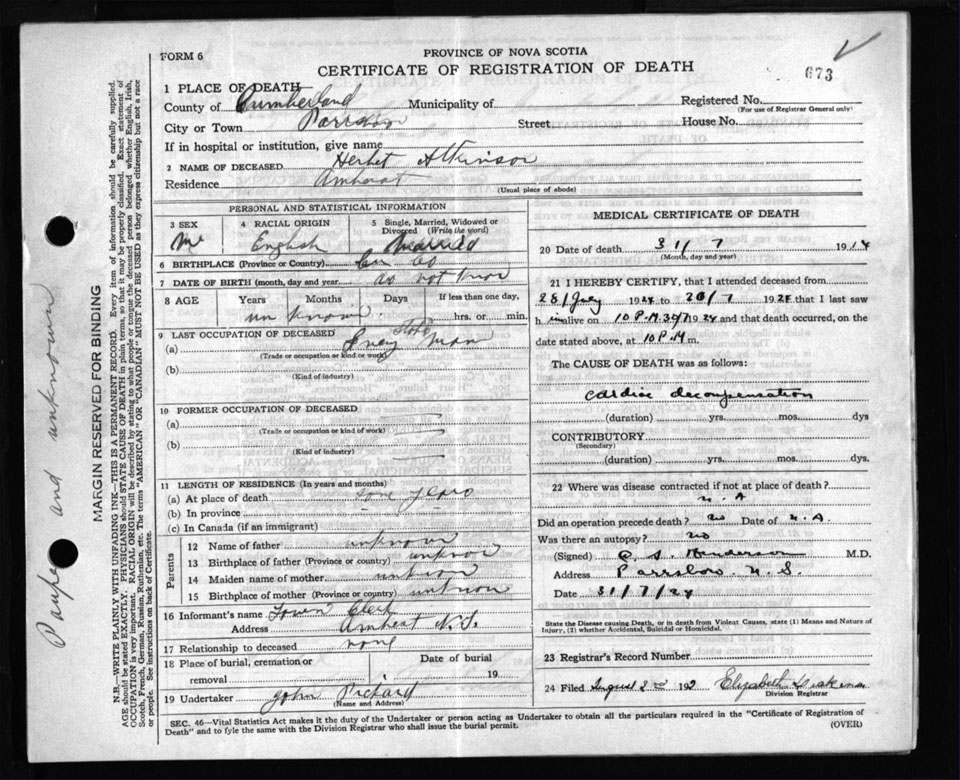 FORM 6
PROVINCE OF NOVA SCOTIA
CERTIFICATE OF REGISTRATION OF DEATH
673
1 PLACE OF DEATH
County of Cumberland Municipality of Registered No.
(For use of Registrar General only)
City or Town Parrsboro Street House No.
If in hospital or institution, give name
2 NAME OF DECEASED Herbet Atkinson
Residence Amherst
(Usual place of abode)
PERSONAL AND STATISTICAL INFORMATION
3 SEX
4 RACIAL ORIGIN
5 Single, Married, Widowed or Divorced (Write the word)
English Married
6 BIRTHPLACE (Province or Country) Co
7 DATE OF BIRTH (month, day and year) not know
8 AGE Years Months Days If less than one day,
unknown hrs. or min.
9 LAST OCCUPATION OF DECEASED
(a) man
(Trade or occupation or kind of work)
(b)
(Kind of industry)
10 FORMER OCCUPATION OF DECEASED
(a)
(Trade or occupation or kind of work)
(b)
(Kind of industry)
11 LENGTH OF RESIDENCE (In years and months)
(a) At place of death some years
(b) In province
(c) In Canada (if an immigrant)
Parents
12 Name of father unknown
13 Birthplace of father (Province or country) unknon
14 Maiden name of mother unknon
15 Birthplace of mother (Province or country) unknon
16 Informant's name Town Clerk
Address Amherst N.S.
17 Relationship to deceased none
18 Place of burial, cremation or removal Date of burial 19
19 Undertaker John Pichard
(Name and Address)
MEDICAL CERTIFICATE OF DEATH
20 Date of death 31/7 19
(Month, day and year)
21 I HEREBY CERTIFY, that I attended deceased from
28/July 19 to /7 19 that I last saw
h im alive on 10 P.M. 19 24 and that death occurred, on the
date stated above, at 10 P.M m.
The CAUSE OF DEATH was as follows:
cardiac decompensation
(duration) yrs. mos. dys
CONTRIBUTORY
(Secondary)
(duration) yrs. mos. dys
22 Where was disease contracted if not at place of death?
N.A
Did an operation precede death? no Date of N.A.
Was there an autopsy? no
(Signed) Henderson M.D.
Address Parrsboro N.S.
Date 31/7/24
State the Disease causing Death, or in death from Violent Causes, state (1) Means and Nature of
Injury, (2) whether Accidental, Suicidal or Homicidal.
23 Registrar's Record Number
24 Filed August 2nd 192 Elizabeth
Division Registrar
SEC. 46—Vital Statistics Act makes it the duty of the Undertaker or person acting as Undertaker to obtain all the particulars required in the "Certificate of Registration of
Death" and to fyle the same with the Division Registrar who shall issue the burial permit.
(OVER)
Pauper and unknown
MARGIN RESERVED FOR BINDING
N.B.—WRITE PLAINLY WITH UNFADING INK—THIS IS A PERMANENT RECORD. Every item of information should be carefully supplied.
AGE should be stated EXACTLY. PHYSICIANS should STATE CAUSE OF DEATH in plain terms, so that it may be properly classified. Exact statement of
OCCUPATION is very important. RACIAL ORIGIN will be described by stating to what people or tongue the deceased person belonged whether English, Irish,
Scotch, French, German, Russian, Ruthenian, etc. The terms "AMERICAN" or "CANADIAN" MUST NOT BE USED as they express citizenship but not a race
or people. See instructions on back of Certificate.